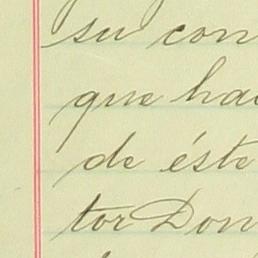 su con
que ha
de éste
tor Don